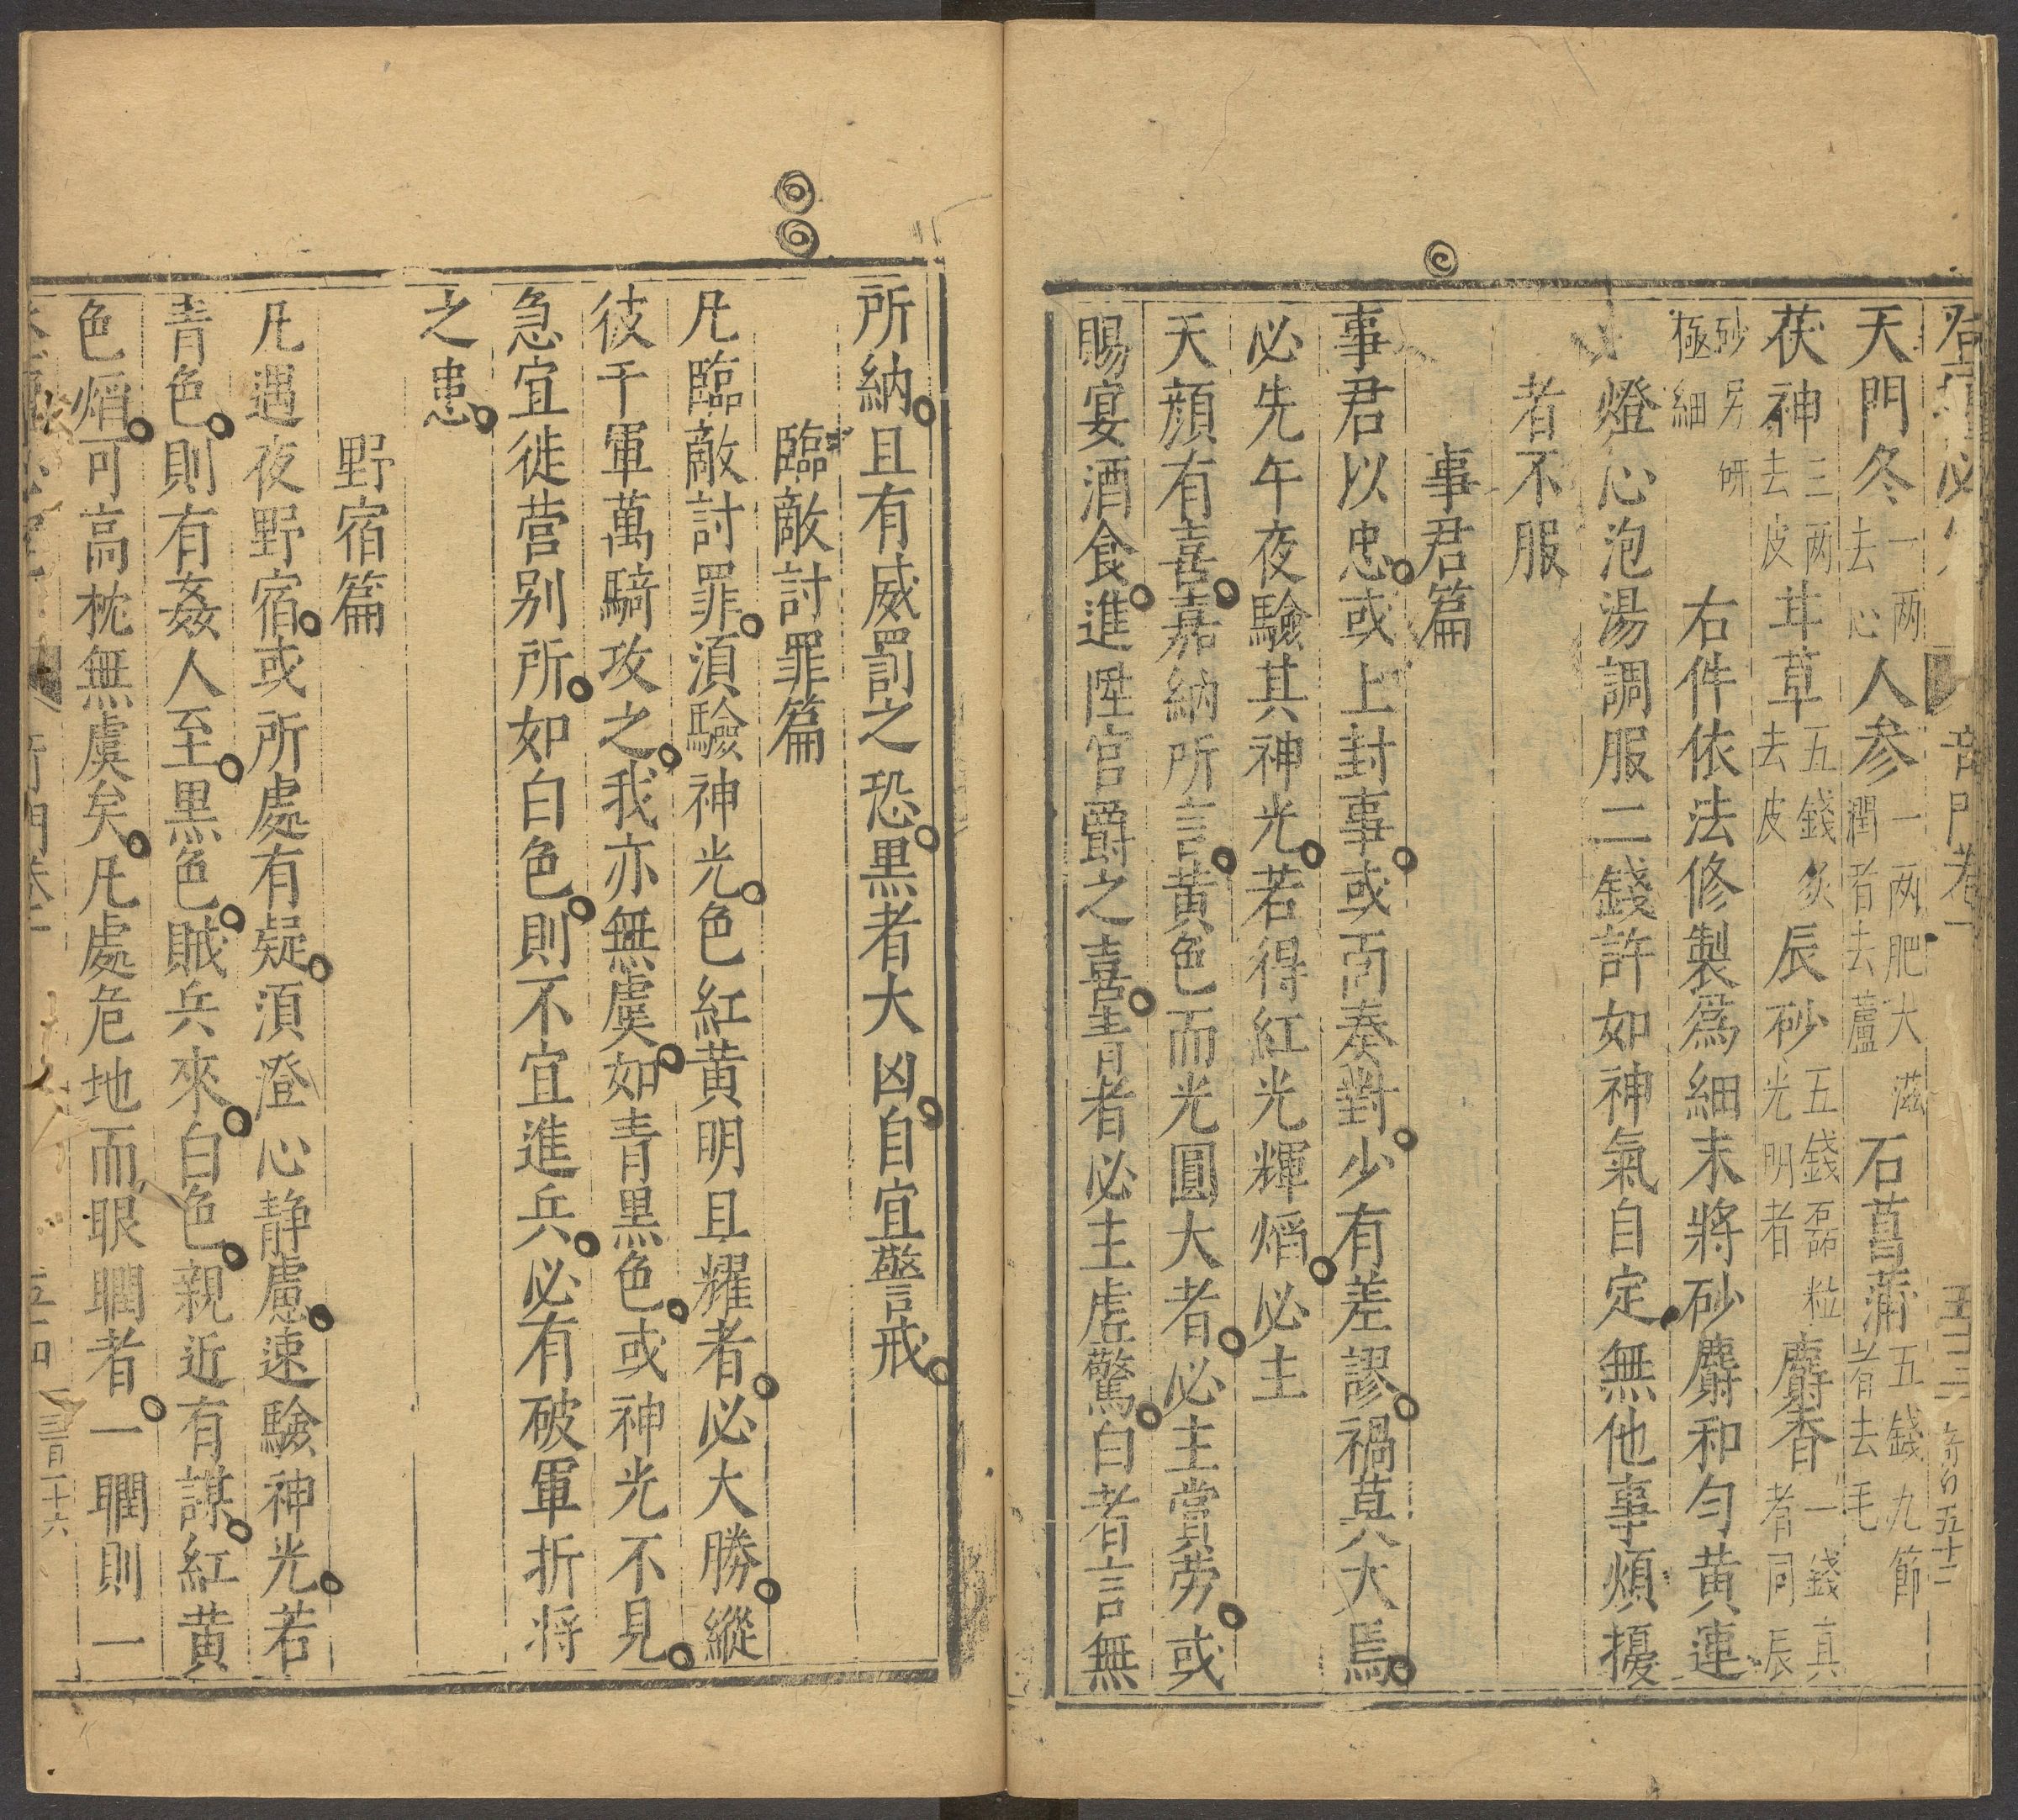 天門冬一两去心人參一两肥大滋潤者去蘆石菖蒲五錢九節者去毛
茯神三两去皮甘草五錢炙去皮辰砂五錢磊粒光明者麝香一錢真者同辰
砂另研極細右件依法修製爲細末將砂麝和勻黄連
燈心泡湯調服二錢許如神氣自定無他事煩擾
者不服
事君篇
事君以忠或上封事或面奏對少有差謬禍莫大焉
必先午夜驗其神光若得紅光輝熖必主
天顔有喜嘉納所言黄色而光圓大者必主賞劳或
賜宴酒食進陞官爵之喜青者必主虛驚白者言無
所納且有威罰之恐黒者大凶自宜警戒
臨敵討罪篇
凡臨敵討罪湏驗神光色紅黄明且耀者必大勝縱
彼千軍萬騎攻之我亦無虞如青黒色或神光不見
急宜徙营别所如白色則不宜進兵必有破軍折将
之患
野宿篇
凡遇夜野宿或所處有疑湏澄心静慮速驗神光若
青色則有姦人至黒色賊兵來白色親近有謀紅黄
色熖可高枕無虞矣凡處危地而眼瞤者一瞤則一